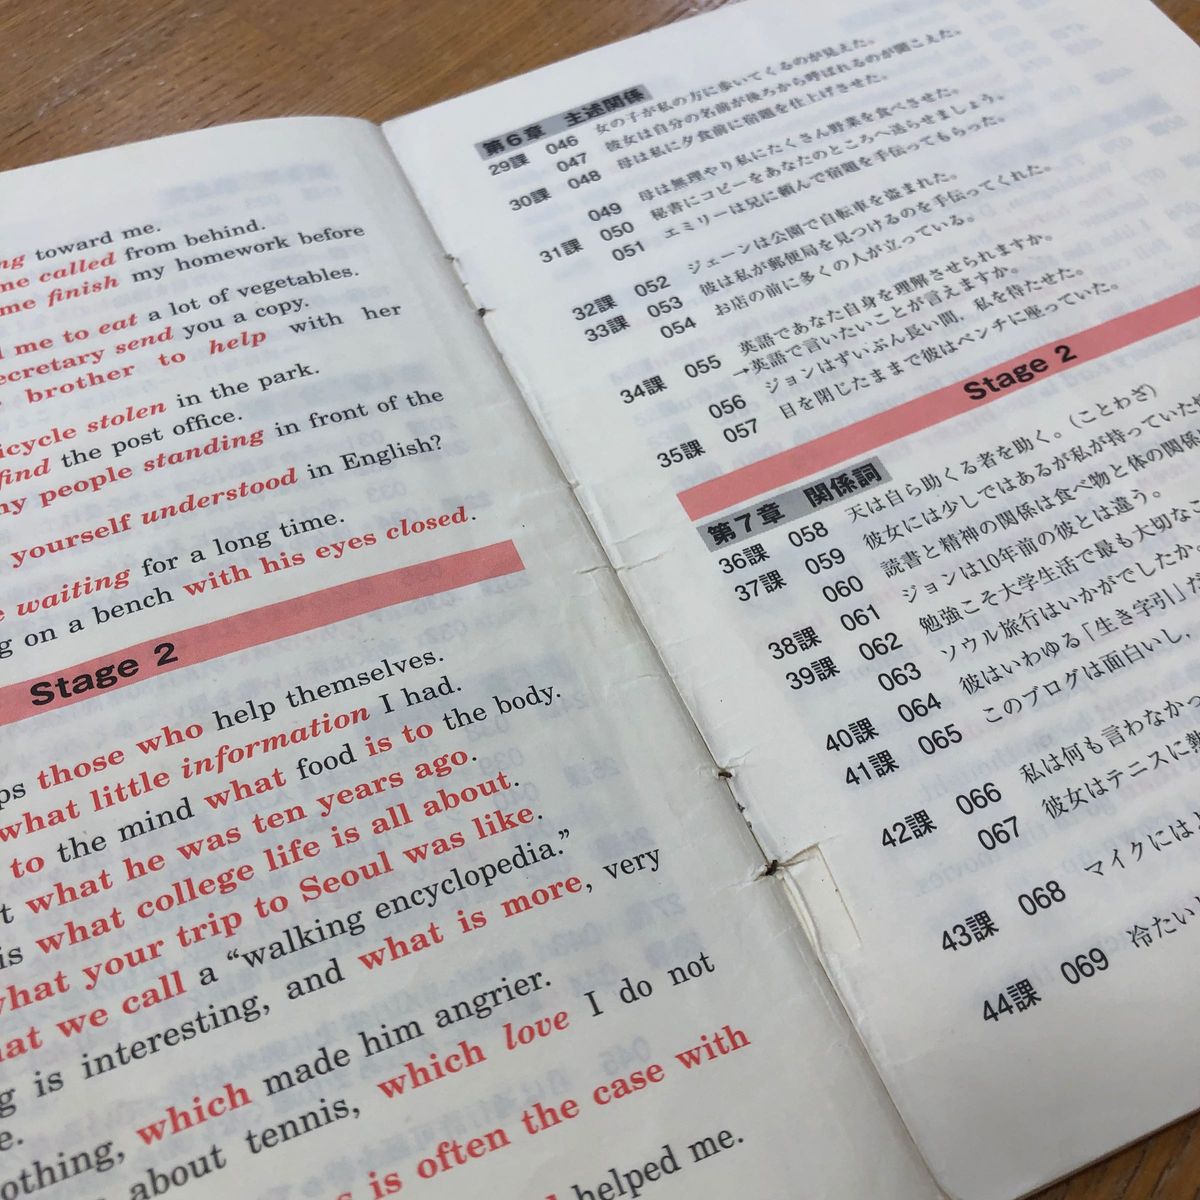 toward me.
me called from behind.
me finish my homework before
me to eat a lot of vegetables.
send you a copy.
brother to help with her
stolen in the park.
find the post office.
people standing in front of the
yourself understood in English?
waiting for a long time.
on a bench with his eyes closed.
Stage 2
those who help themselves.
what little information I had.
to the mind what food is to the body.
what he was ten years ago.
is what college life is all about.
what your trip to Seoul was like.
we call a “walking encyclopedia.”
is interesting, and what is more, very
which made him angrier.
about tennis, which love I do not
is often the case with
helped me.
第6章 主述関係
29課 046 女の子が私の方に歩いてくるのが見えた。
047 彼女は自分の名前が後ろから呼ばれるのが聞こえた。
30課 048 母は私に夕食前に宿題を仕上げさせた。
049 母は無理やり私にたくさん野菜を食べさせた。
31課 050 秘書にコピーをあなたのところへ送らせましょう。
051 エミリーは兄に頼んで宿題を手伝ってもらった。
32課 052 ジェーンは公園で自転車を盗まれた。
33課 053 彼は私が郵便局を見つけるのを手伝ってくれた。
054 お店の前に多くの人が立っている。
34課 055 英語であなた自身を理解させられますか。
→英語で言いたいことが言えますか。
056 ジョンはずいぶん長い間，私を待たせた。
35課 057 目を閉じたままで彼はベンチに座っていた。
Stage 2
第7章 関係詞
36課 058 天は自ら助くる者を助く。（ことわざ）
37課 059 彼女には少しではあるが私が持っていた
060 読書と精神の関係は食べ物と体の関係
38課 061 ジョンは10年前の彼とは違う。
39課 062 勉強こそ大学生活で最も大切なこ
063 ソウル旅行はいかがでしたか
40課 064 彼はいわゆる「生き字引」だ
41課 065 このブログは面白いし，
42課 066 私は何も言わなかっ
067 彼女はテニスに熱
43課 068 マイクには
44課 069 冷たい